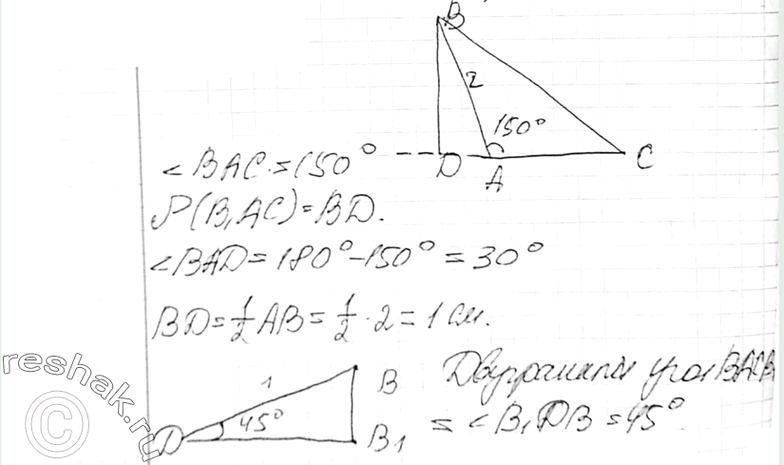 B
2
150°
D
A
C
∠BAC = 150°
ρ(B, AC) = BD.
∠BAD = 180° - 150° = 30°
BD = 1/2 AB = 1/2 · 2 = 1 см.
1
B
45°
D
B1
Двугранный угол BACB
= ∠B1DB = 45°.
reshak.ru
©